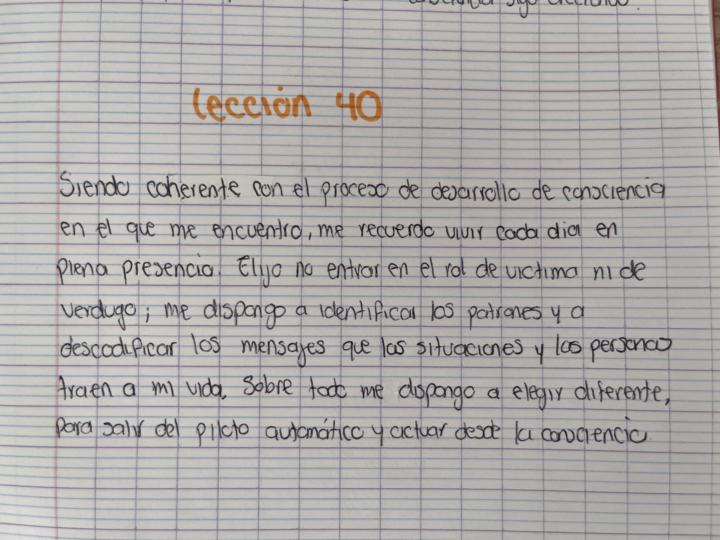 Lección 40
Siendo coherente con el proceso de desarrollo de consciencia
en el que me encuentro, me recuerdo vivir cada dia en
plena presencia. Elijo no entrar en el rol de victima ni de
verdugo; me dispongo a identificar los patrones y a
descodificar los mensajes que las situaciones y las personas
traen a mi vida. Sobre todo me dispongo a elegir diferente,
para salir del piloto automático y actuar desde la consciencia